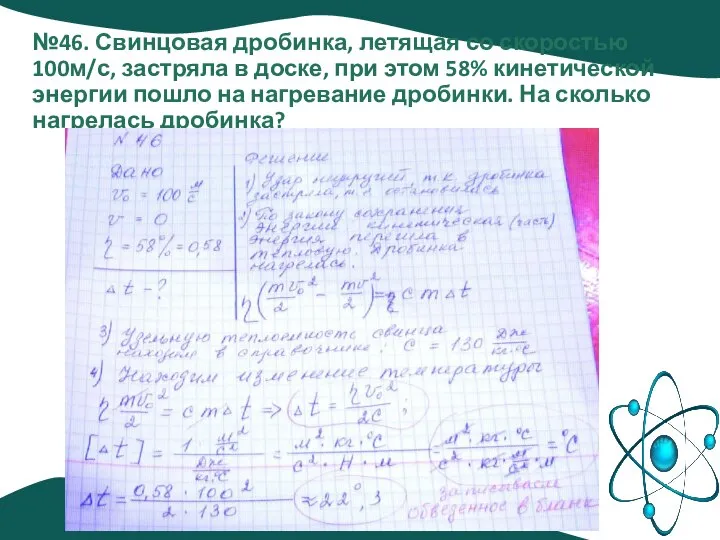 №46. Свинцовая дробинка, летящая со скоростью
100м/с, застряла в доске, при этом 58% кинетической
энергии пошло на нагревание дробинки. На сколько
нагрелась дробинка?
N 46
Дано
v₀ = 100 м/с
v = 0
η = 58% = 0,58
Δt - ?
Решение
1) Удар неупругий, т.к. дробинка
застряла, т.е. остановилась
2) По закону сохранения
энергии кинетическая (часть)
энергия перешла в
тепловую. Дробинка
нагрелась.
η(mv₀²/2 - mv²/2) = cmΔt
3) Удельную теплоемкость свинца
находим в справочнике: c = 130 Дж/кг·°С
4) Находим изменение температуры
η mv₀²/2 = cmΔt => Δt = ηv₀²/2c ;
[Δt] = 1· м²/с² / Дж/кг·°С = м²·кг·°С / с²·Н·м = м²·кг·°С / с²·кг·м/с²·м = °С
Δt = 0,58·100² / 2·130 ≈ 22°,3
записываем
обведенное в бланк